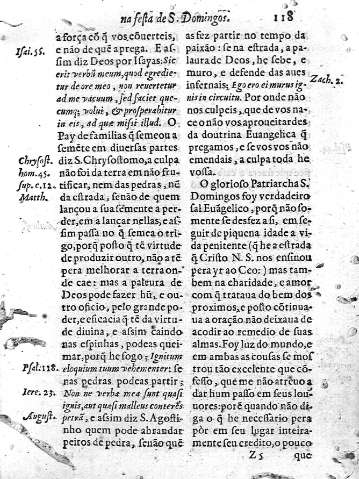 na festa de S. Domingos. 118
a força cõ q̃ vos cõuerteis,
e não de quẽ a prega. E as-
sim diz Deos por Isayas: Sic
erit verbũ meum, quod egredie-
tur de ore meo, non reuertetur
ad me vacuum, sed faciet quæ-
cumq; volui, & prosperabitur
in eis, ad quæ misi illud. O
Pay de familias q̃ semeou a
semẽte em diuersas partes
diz S. Chrysostomo, a culpa
não foi da terra em não fru-
tificar, nem das pedras, nẽ
da estrada, senão de quem
lançou a sua sẽmente a per-
der, em a lançar nellas, e as-
sim passa no q̃ semea o tri-
go, porq̃ posto q̃ tẽ virtude
de produzir outro, não a tẽ
pera melhorar a terra on-
de cae: mas a palaura de
Deos pode fazer hũ, e ou-
tro officio, pelo grande po-
der, e efficacia q̃ tẽ da virtu-
de diuina, e assim caindo
nas espinhas, podeas quei-
mar, porq̃ he fogo; Ignitum
eloquium tuum vehementer: se
nas pedras podeas partir;
Non ne verba mea sunt quasi
ignis, aut quasi malleus conterẽs
petrã, e assim diz S. Agosti-
nho quem pode abrandar
peitos de pedra, senão quẽ
Isai. 55.
Chrysost.
hom. 45.
sup. c. 12.
Matth.
Psal. 118.
Iere. 23.
August.
as fez partir no tempo da
paixão: se na estrada, a pa-
laura de Deos, he sebe, e
muro, e defende das aues
infernais; Ego ero ei murus ig-
nis in circuitu. Por onde não
nos culpeis, que de vos na-
ce o não vos aproueitardes
da doutrina Euangelica q̃
pregamos, e se vos vos não
emendais, a culpa toda he
vossa.
O glorioso Patriarcha S.
Domingos foy verdadeiro
sal Euãgelico, porq̃ não so-
mente se desfez a si, em se-
guir de piquena idade a vi-
da penitente (q̃ he a estrada
q̃ Cristo N. S. nos ensinou
pera yr ao Ceo:) mas tam-
bem na charidade, e amor
com q̃ trataua do bem dos
proximos, e posto cõtinua-
ua a oração não deixaua de
acodir ao remedio de suas
almas. Foy luz do mundo, e
em ambas as cousas se mos-
trou tão excelente que cõ-
fesso, que me não atreuo a
dar hum passo em seus lou-
uores: porẽ quando não di-
ga o q̃ he necessario pera
pór em seu lugar inteira-
mente seu credito, o pouco
Zach. 2.
Z 5 que